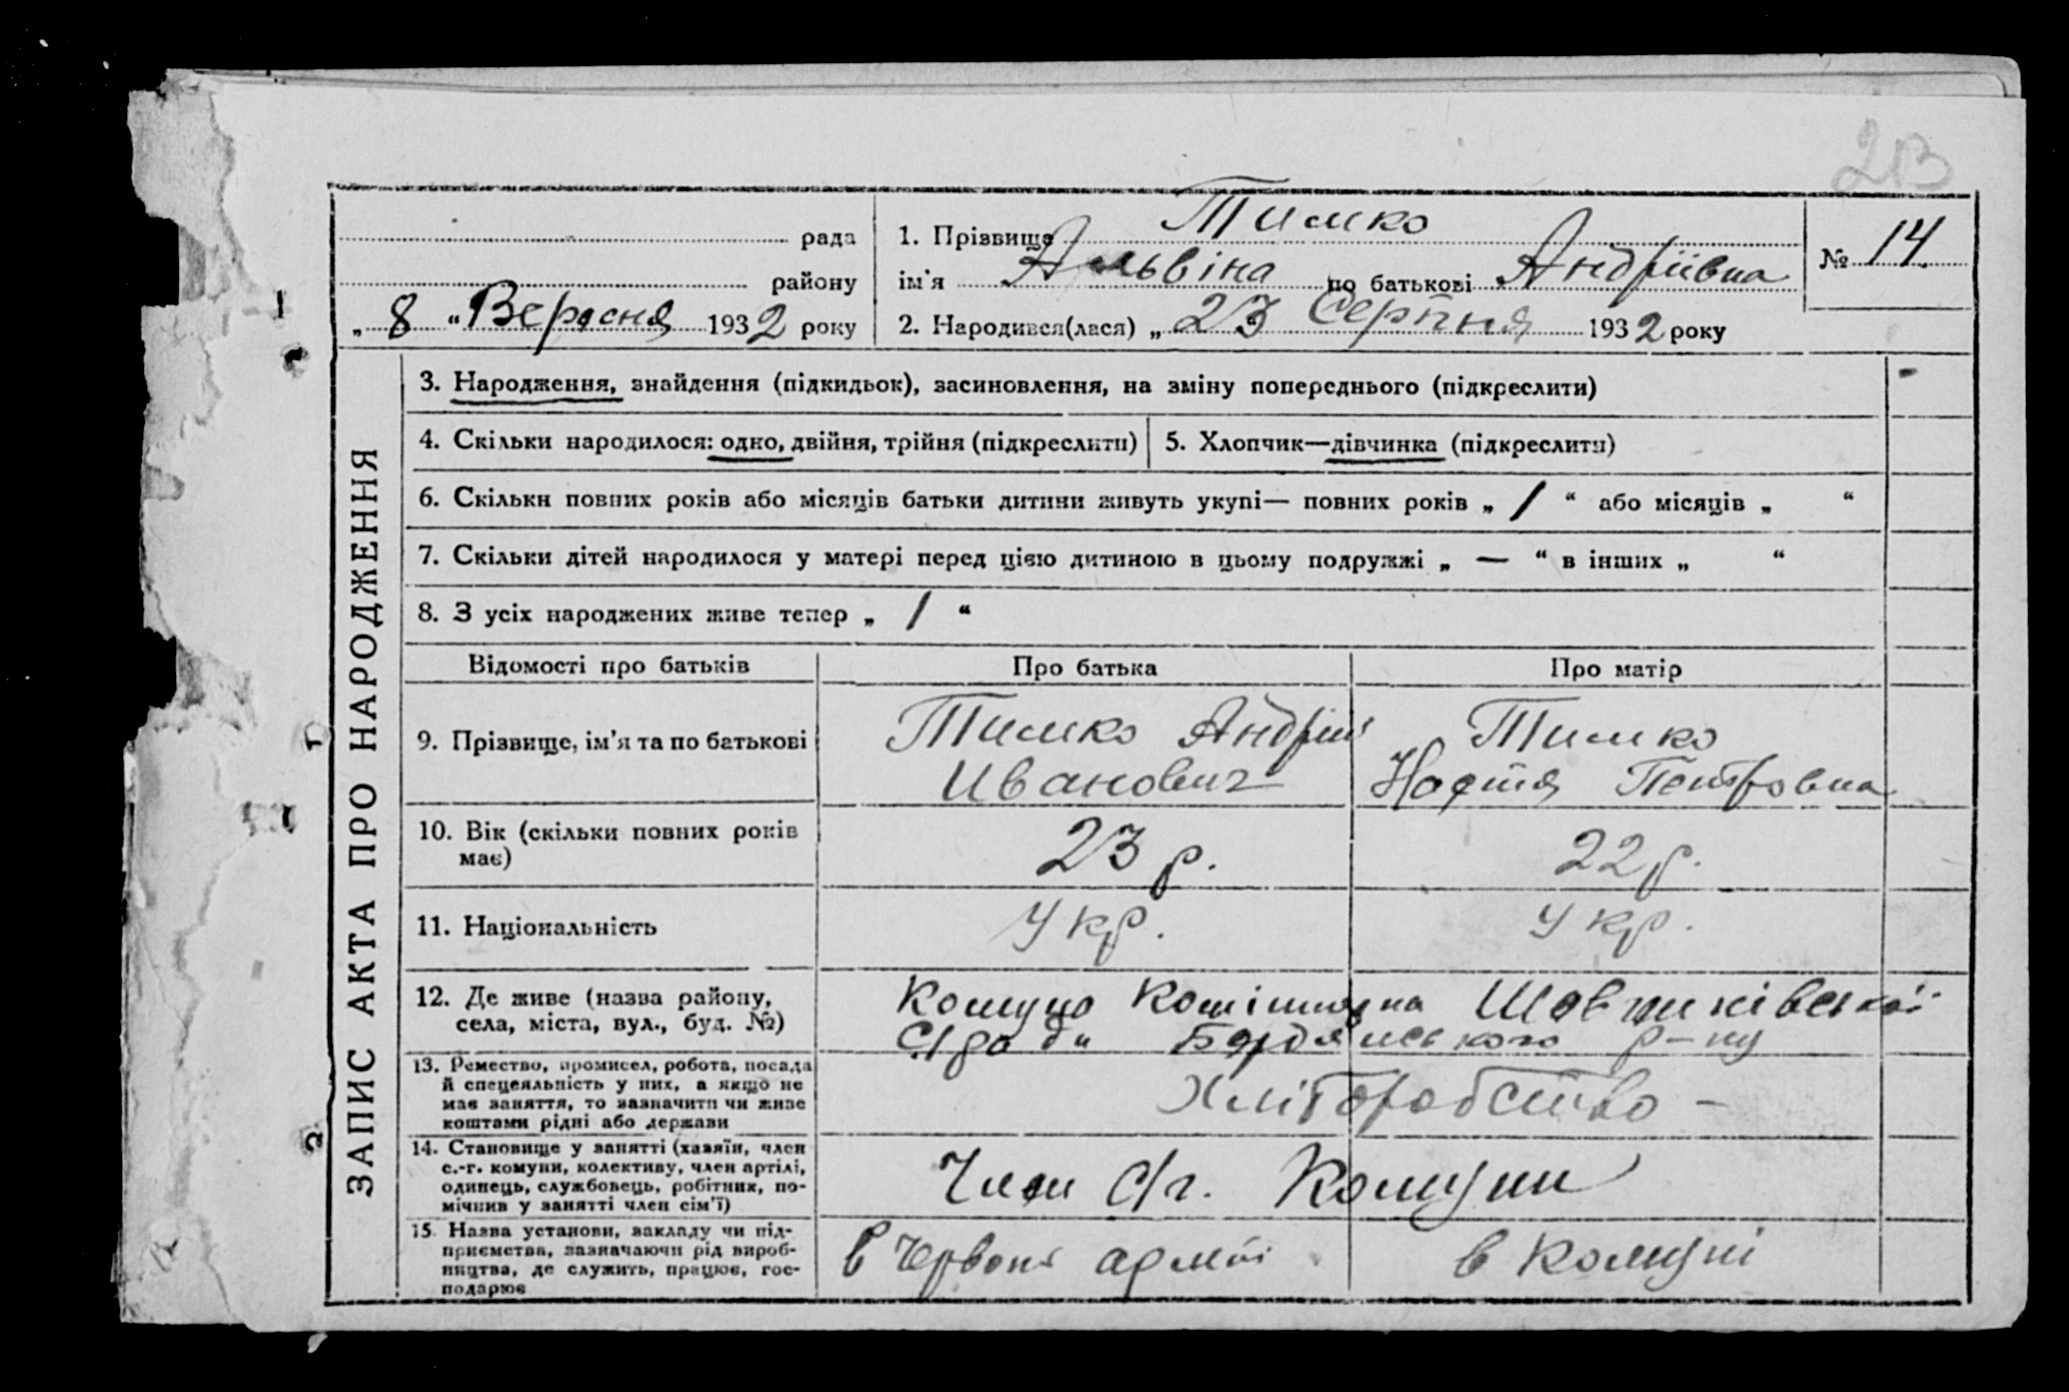 213
рада
району
„ 8 “ Вересня 1932 року
1. Прізвище Тимко
ім'я Альвіна по батькові Андріївна
2. Народився(лася) „ 23 Серпня 1932 року
№ 14
ЗАПИС АКТА ПРО НАРОДЖЕННЯ
3. Народження, знайдення (підкидьок), засиновлення, на зміну попереднього (підкреслити)
4. Скільки народилося: одно, двійня, трійня (підкреслити)
5. Хлопчик—дівчинка (підкреслити)
6. Скільки повних років або місяців батьки дитини живуть укупі— повних років „ 1 “ або місяців „ “
7. Скільки дітей народилося у матері перед цією дитиною в цьому подружжі „ — “ в інших „ “
8. З усіх народжених живе тепер „ 1 “
Відомості про батьків Про батька Про матір
9. Прізвище, ім'я та по батькові
Тимко Андрій
Иванович
Тимко
Настя Петровна
10. Вік (скільки повних років
має)
23 р.
22 р.
11. Національність
Укр.
Укр.
12. Де живе (назва району,
села, міста, вул., буд. №)
Комуна
С/ради Бердянського р-ну
13. Ремество, промисел, робота, посада
й спецеяльність у них, а якщо не
має заняття, то зазначити чи живе
коштами рідні або держави
Хліборобство -
14. Становище у занятті (хазяїн, член
с.-г. комуни, колективу, член артілі,
одинець, службовець, робітник, по-
мічник у занятті член сім'ї)
Член с/г. Комуни
15. Назва установи, закладу чи під-
приємства, зазначаючи рід вироб-
ництва, де служить, працює, гос-
подарює
в Червоні армії
в Комуні